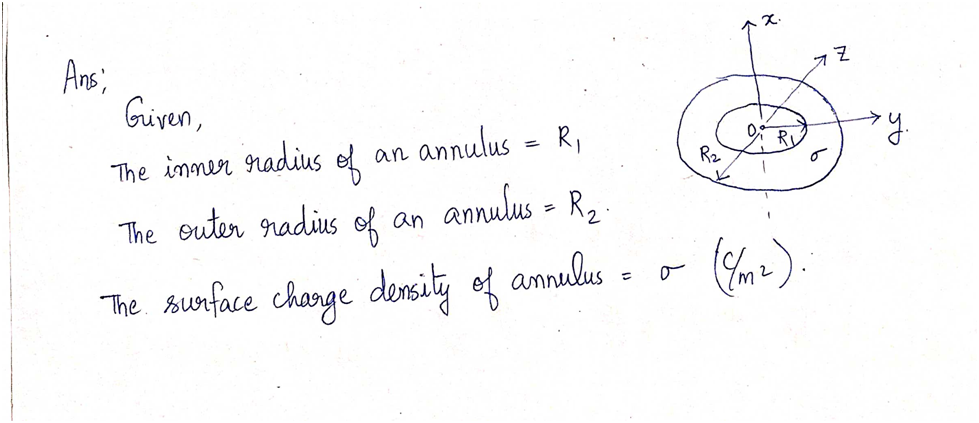 Ans;
Given,
The inner radius of an annulus = R₁
The outer radius of an annulus = R₂.
The surface charge density of annulus = σ (C/m²).
x.
z
y.
O
R₁
R₂
σ